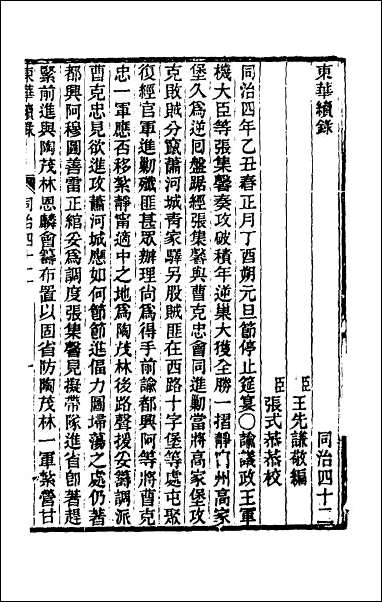 東華續錄　同治四十二
臣王先謙敬編
臣張式恭恭校
同治四年乙丑春正月丁酉朔元旦節停止筵宴〇諭議政王軍
機大臣等張集馨奏攻破積年逆巢大獲全勝一摺靜甯州高家
堡久爲逆回盤踞經張集馨與曹克忠會同進勦當將高家堡攻
克敗賊分竄蕭河城青家驛另股賊匪在西路十字堡等處屯聚
復經官軍進勦殲匪甚眾辦理尚爲得手前諭都興阿等將曹克
忠一軍應否移紮靜甯適中之地爲陶茂林後路聲援妥籌調派
曹克忠見欲進攻蕭河城應如何節節進偪力圖埽蕩之處仍著
都興阿穆圖善雷正綰妥爲調度張集馨見擬帶隊進省卽著趕
緊前進與陶茂林恩麟會籌布置以固省防陶茂林一軍紮營甘
東華續錄　同治四十二　一